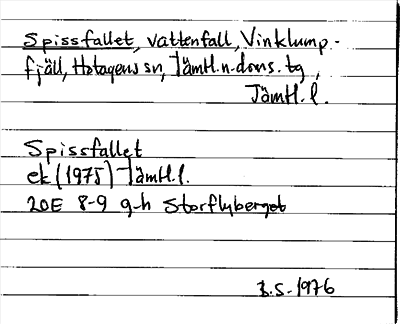 Spissfallet, vattenfall, Vinklump-
fjäll, Hotagens sn, Jämtl.n.doms.tg,
Jämtl. l.
Spissfallet
ek (1975) Jämtl.l.
20E 8-9 g-h Storflyberget
B.S. 1976